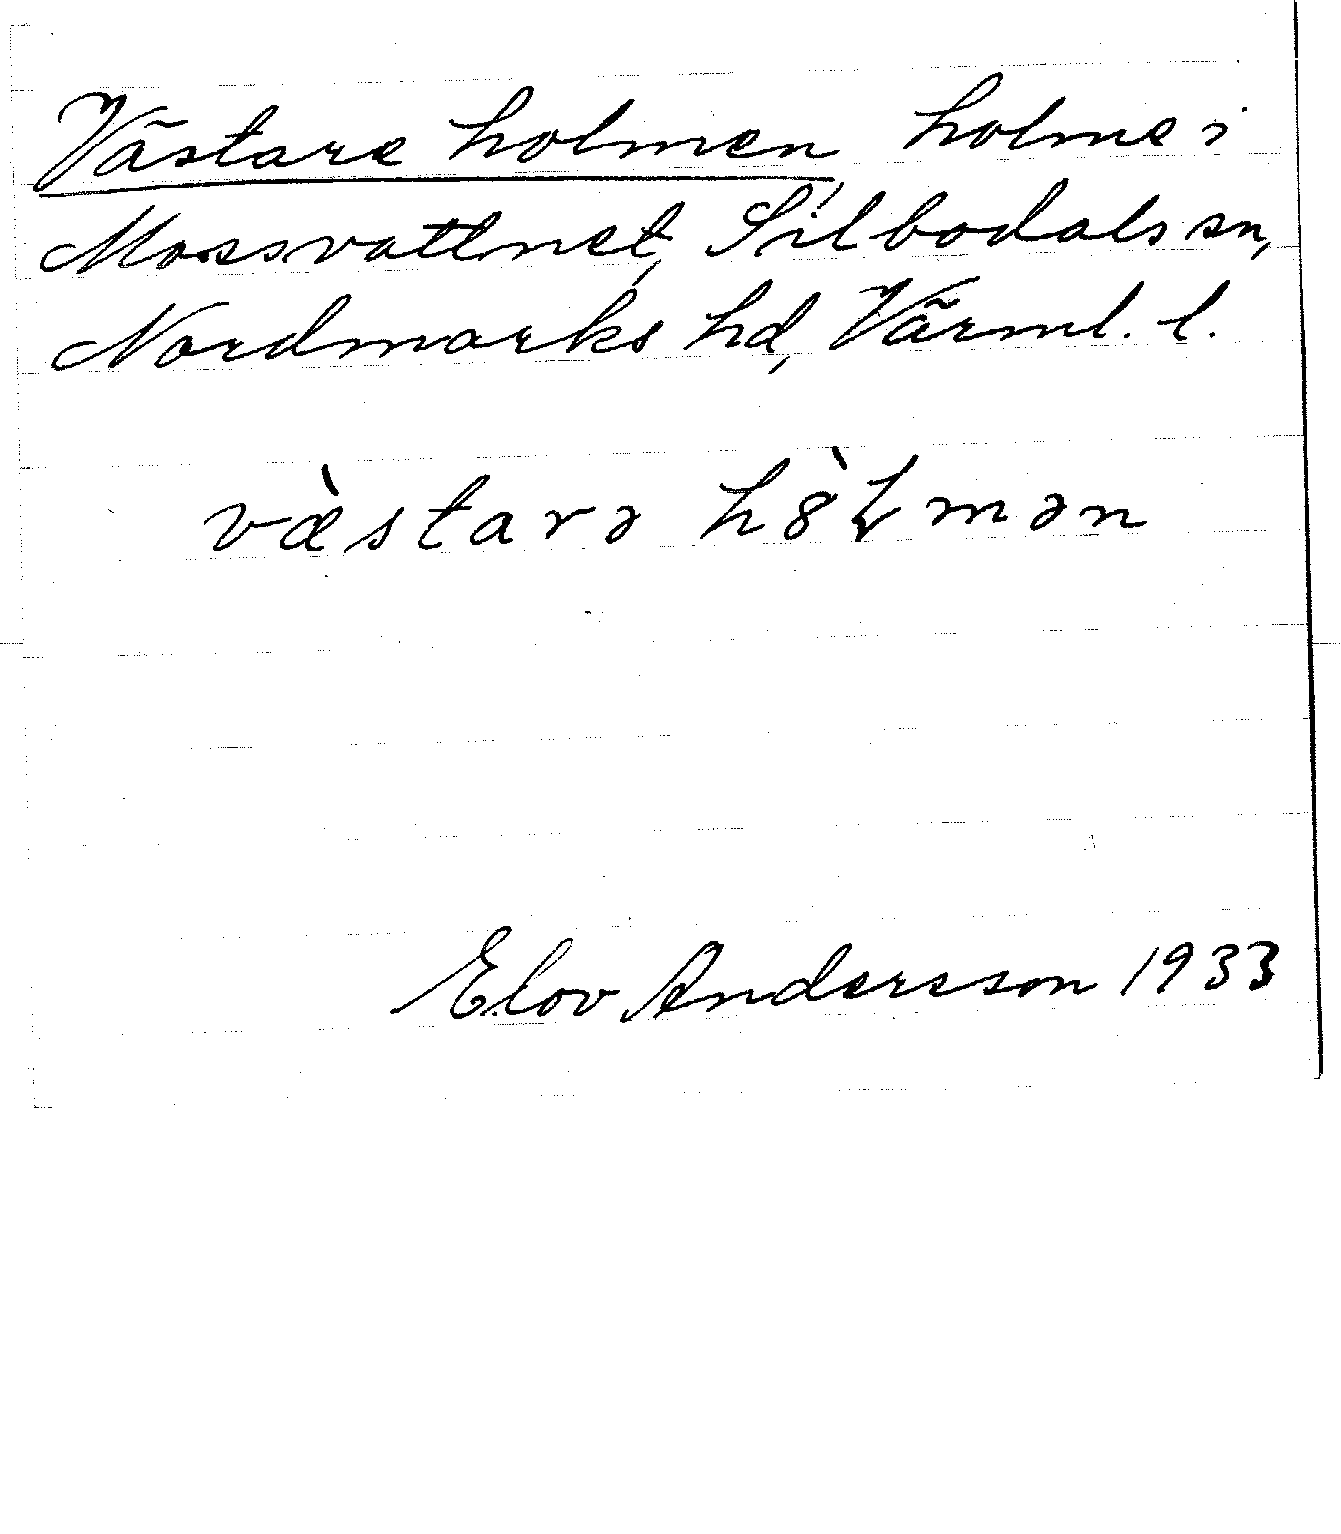 Västare holmen holme i
Mossvattnet, Silbodals sn,
Nordmarks hd, Värml. l.
væ̀starə hȣ̀ɬmən
Elov Andersson 1933